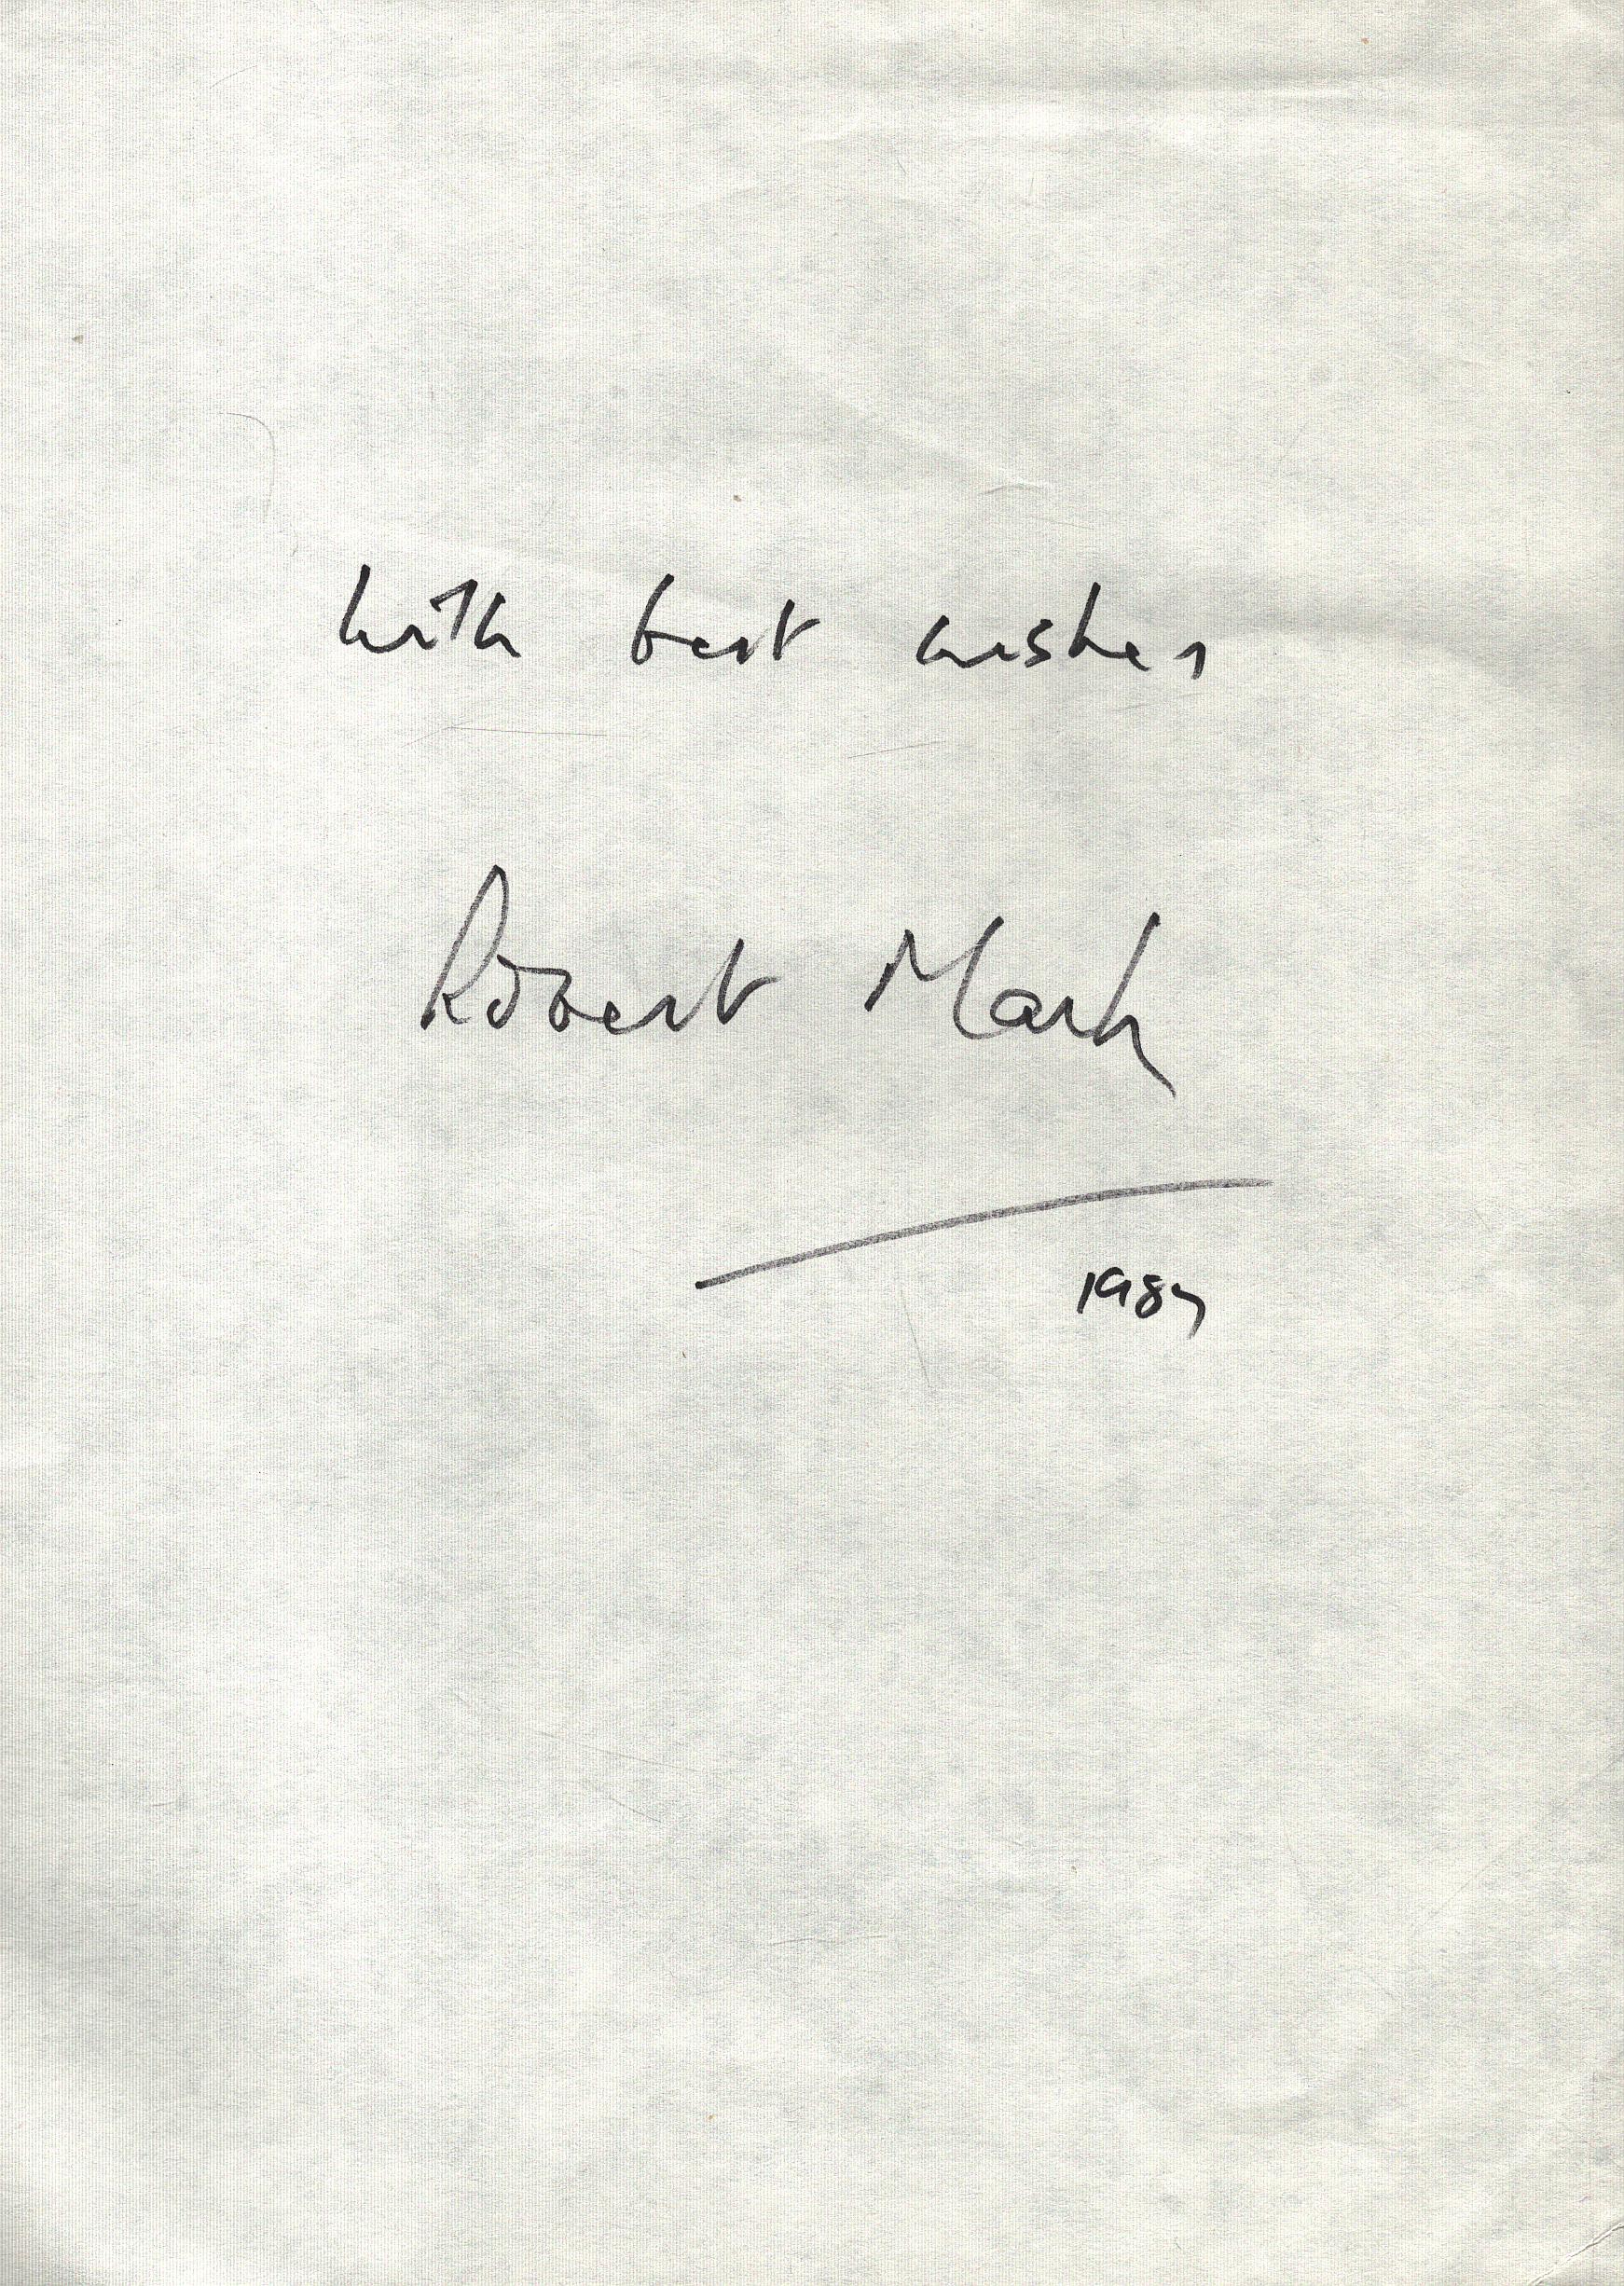 with best wishes
Robert Mark
1987